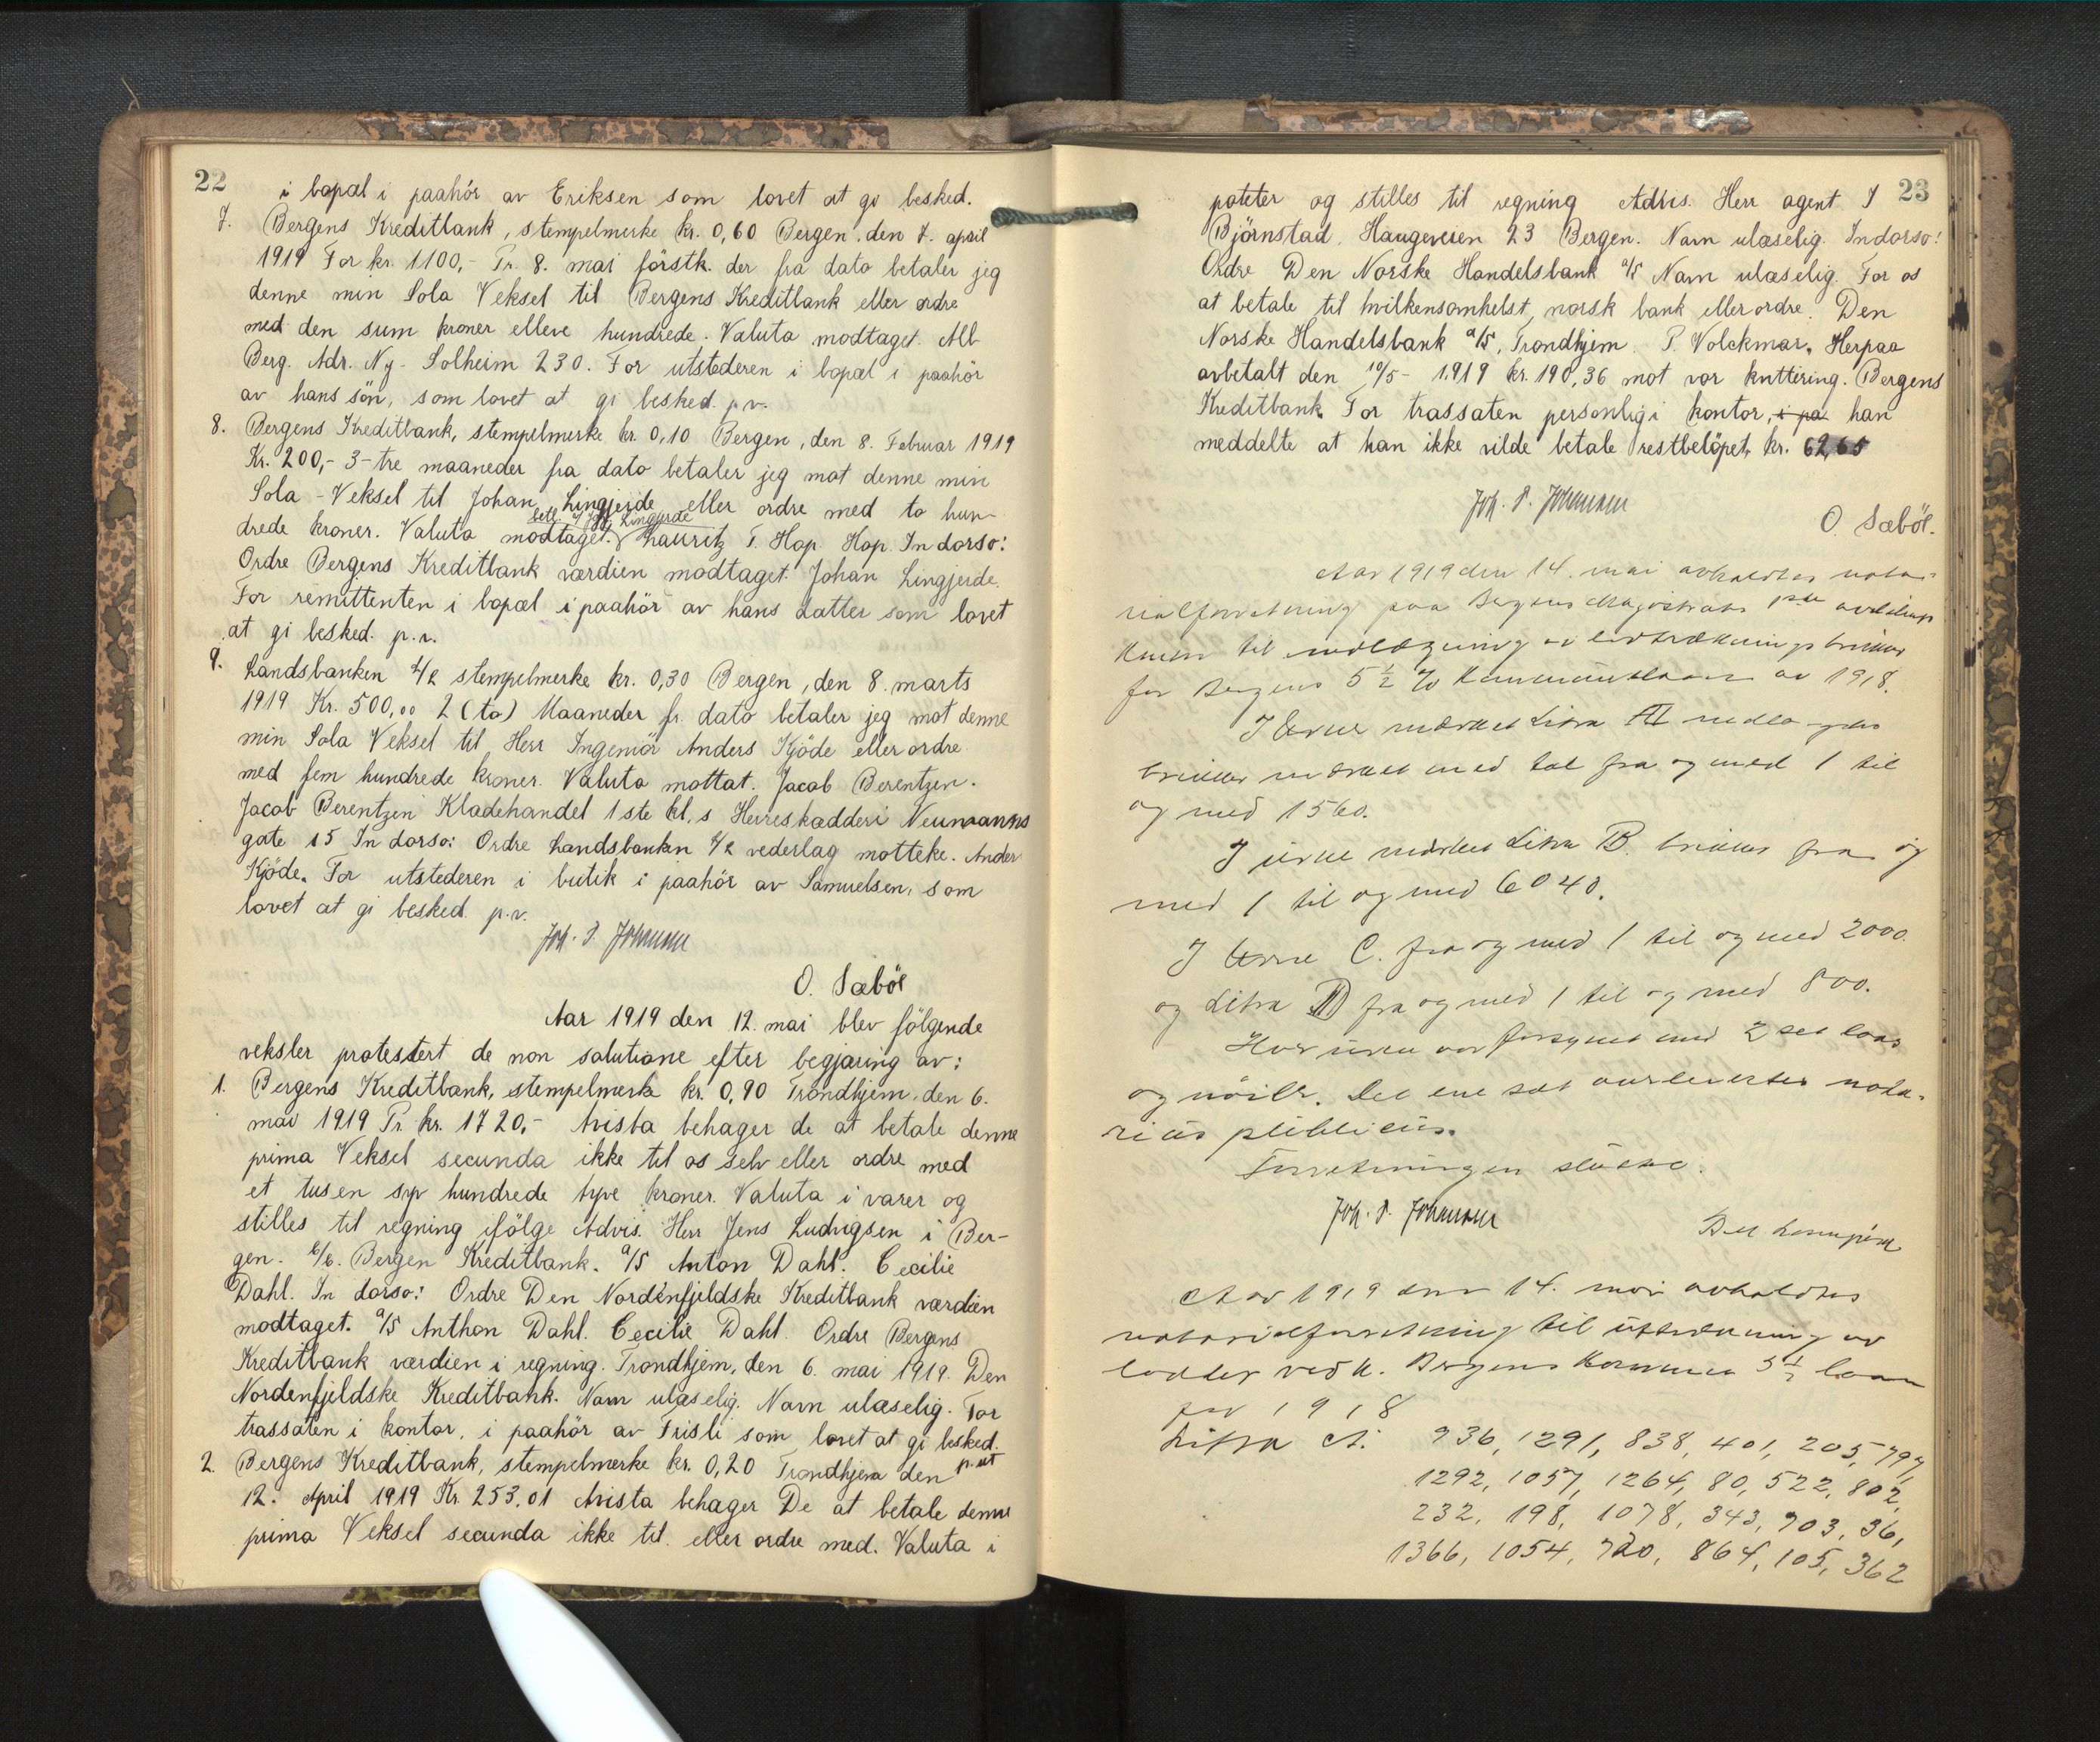 22
i bopæl i paahör av Eriksen som lovet at gi besked.
7. Bergens Kreditbank, stempelmerke kr. 0,60 Bergen, den 7. april
1919 For kr. 1100,- Pr. 8. mai förstk. der fra dato betaler jeg
denne min Sola Veksel til Bergens Kreditbank eller ordre
med den sum kroner elleve hundrede. Valuta modtaget. Alb
Berg. Adr. Ny- Solheim 230. For utstederen i bopæl i paahör
av hans sön, som lovet at gi besked. p.v.
8. Bergens Kreditbank, stempelmerke kr. 0,10 Bergen, den 8. Februar 1919
Kr. 200,- 3-tre maaneder fra dato betaler jeg mot denne min
Sola-Veksel til Johan Lingjerde eller ordre med to hun-
Lingjerde
drede kroner. Valuta modtaget. Lauritz T. Hop. Hop. In dorso:
Ordre Bergens Kreditbank værdien modtaget. Johan Lingjerde.
For remittenten i bopæl i paahör av hans datter som lovet
at gi besked. p.v.
9. Landsbanken A/L stempelmerke kr. 0,30 Bergen, den 8. marts
1919 Kr. 500,00 2 (to) Maaneder fr. dato betaler jeg mot denne
min Sola Veksel til Herr Ingeniör Anders Kjöde eller ordre
med fem hundrede kroner. Valuta mottat. Jacob Berentzen.
Jacob Berentzen Klædehandel 1ste kl.s Herreskædderi Neumanns
gate 15 In dorso: Ordre Landsbanken A/L vederlag motteke. Anders
Kjöde. For utstederen i butik i paahör av Samuelsen, som
lovet at gi besked. p.v.
Joh. S. Johannsen
O. Sæböe
Aar 1919 den 12. mai blev fölgende
veksler protestert de non solutione efter begjæring av:
1. Bergens Kreditbank, stempelmerke kr. 0,90 Trondhjem, den 6.
mai 1919 Pr. kr. 1720,- Avista behager de at betale denne
prima Veksel secunda ikke til os selv eller ordre med
et tusen syv hundrede tyve kroner. Valuta i varer og
stilles til regning ifölge Advis. Herr Jens Ludvigsen i Ber-
gen. Bergen Kreditbank. A/S Anton Dahl. Cecilie
Dahl. In dorso: Ordre Den Nordenfjeldske Kreditbank værdien
modtaget. A/S Anthon Dahl. Cecilie Dahl. Ordre Bergens
Kreditbank værdien i regning. Trondhjem, den 6. mai 1919. Den
Nordenfjeldske Kreditbank. Navn ulæselig. Navn ulæselig. For
trassaten i kontor, i paahör av Frisli som lovet at gi besked.
2. Bergens Kreditbank, stempelmerke kr. 0,20 Trondhjem den
12. April 1919 Kr. 253.01 Avista behager De at betale denne
prima Veksel secunda ikke til eller ordre med. Valuta i
23
poteter og stilles til regning Advis. Herr agent J
Björnstad. Haugeveien 23 Bergen. Navn ulæselig. Indorso:
Ordre Den Norske Handelsbank A/S Navn ulæselig. For os
at betale til hvilkensomhelst norsk bank eller ordre. Den
Norske Handelsbank A/S, Trondhjem. P. Volckmar. Herpaa
avbetalt den 10/5- 1919 kr. 190,36 mot vor kvittering. Bergens
Kreditbank. For trassaten personlig i kontor, i pa han
meddelte at han ikke vilde betale restbelöpet, kr. 62,65
Joh. S. Johannsen
O. Sæböe.
Aar 1919 den 14. mai avholdtes nota-
rialforretning paa Bergens Magistrats 1ste avdelings
kontor til nedlægning av utrækningsbrikker
for Bergens 5 1/2 % Kommunelaan av 1918.
I Urne mærket Litra A nedlagdes
brikker mærket med tal fra og med 1 til
og med 1560.
I urne mærket Litra B. brikker fra og
med 1 til og med 6040.
I Urne C. fra og med 1 til og med 2000.
og Litra D fra og med 1 til og med 800.
Hver urne var forsynet med 2 set laas
og nöiler. Det ene sæt overlevertes nota-
rius publicus.
Forretningen sluttet.
Joh. S. Johannsen
Aar 1919 den 14. mai avholdtes
notarialforretning til uttrækning av
lodder vedk. Bergens Kommunes 5 1/2 laan
for 1918
Litra A. 936, 1291, 838, 401, 205, 797,
1292, 1057, 1264, 80, 522, 802,
232, 198, 1078, 343, 903, 36,
1366, 1054, 720, 864, 105, 362